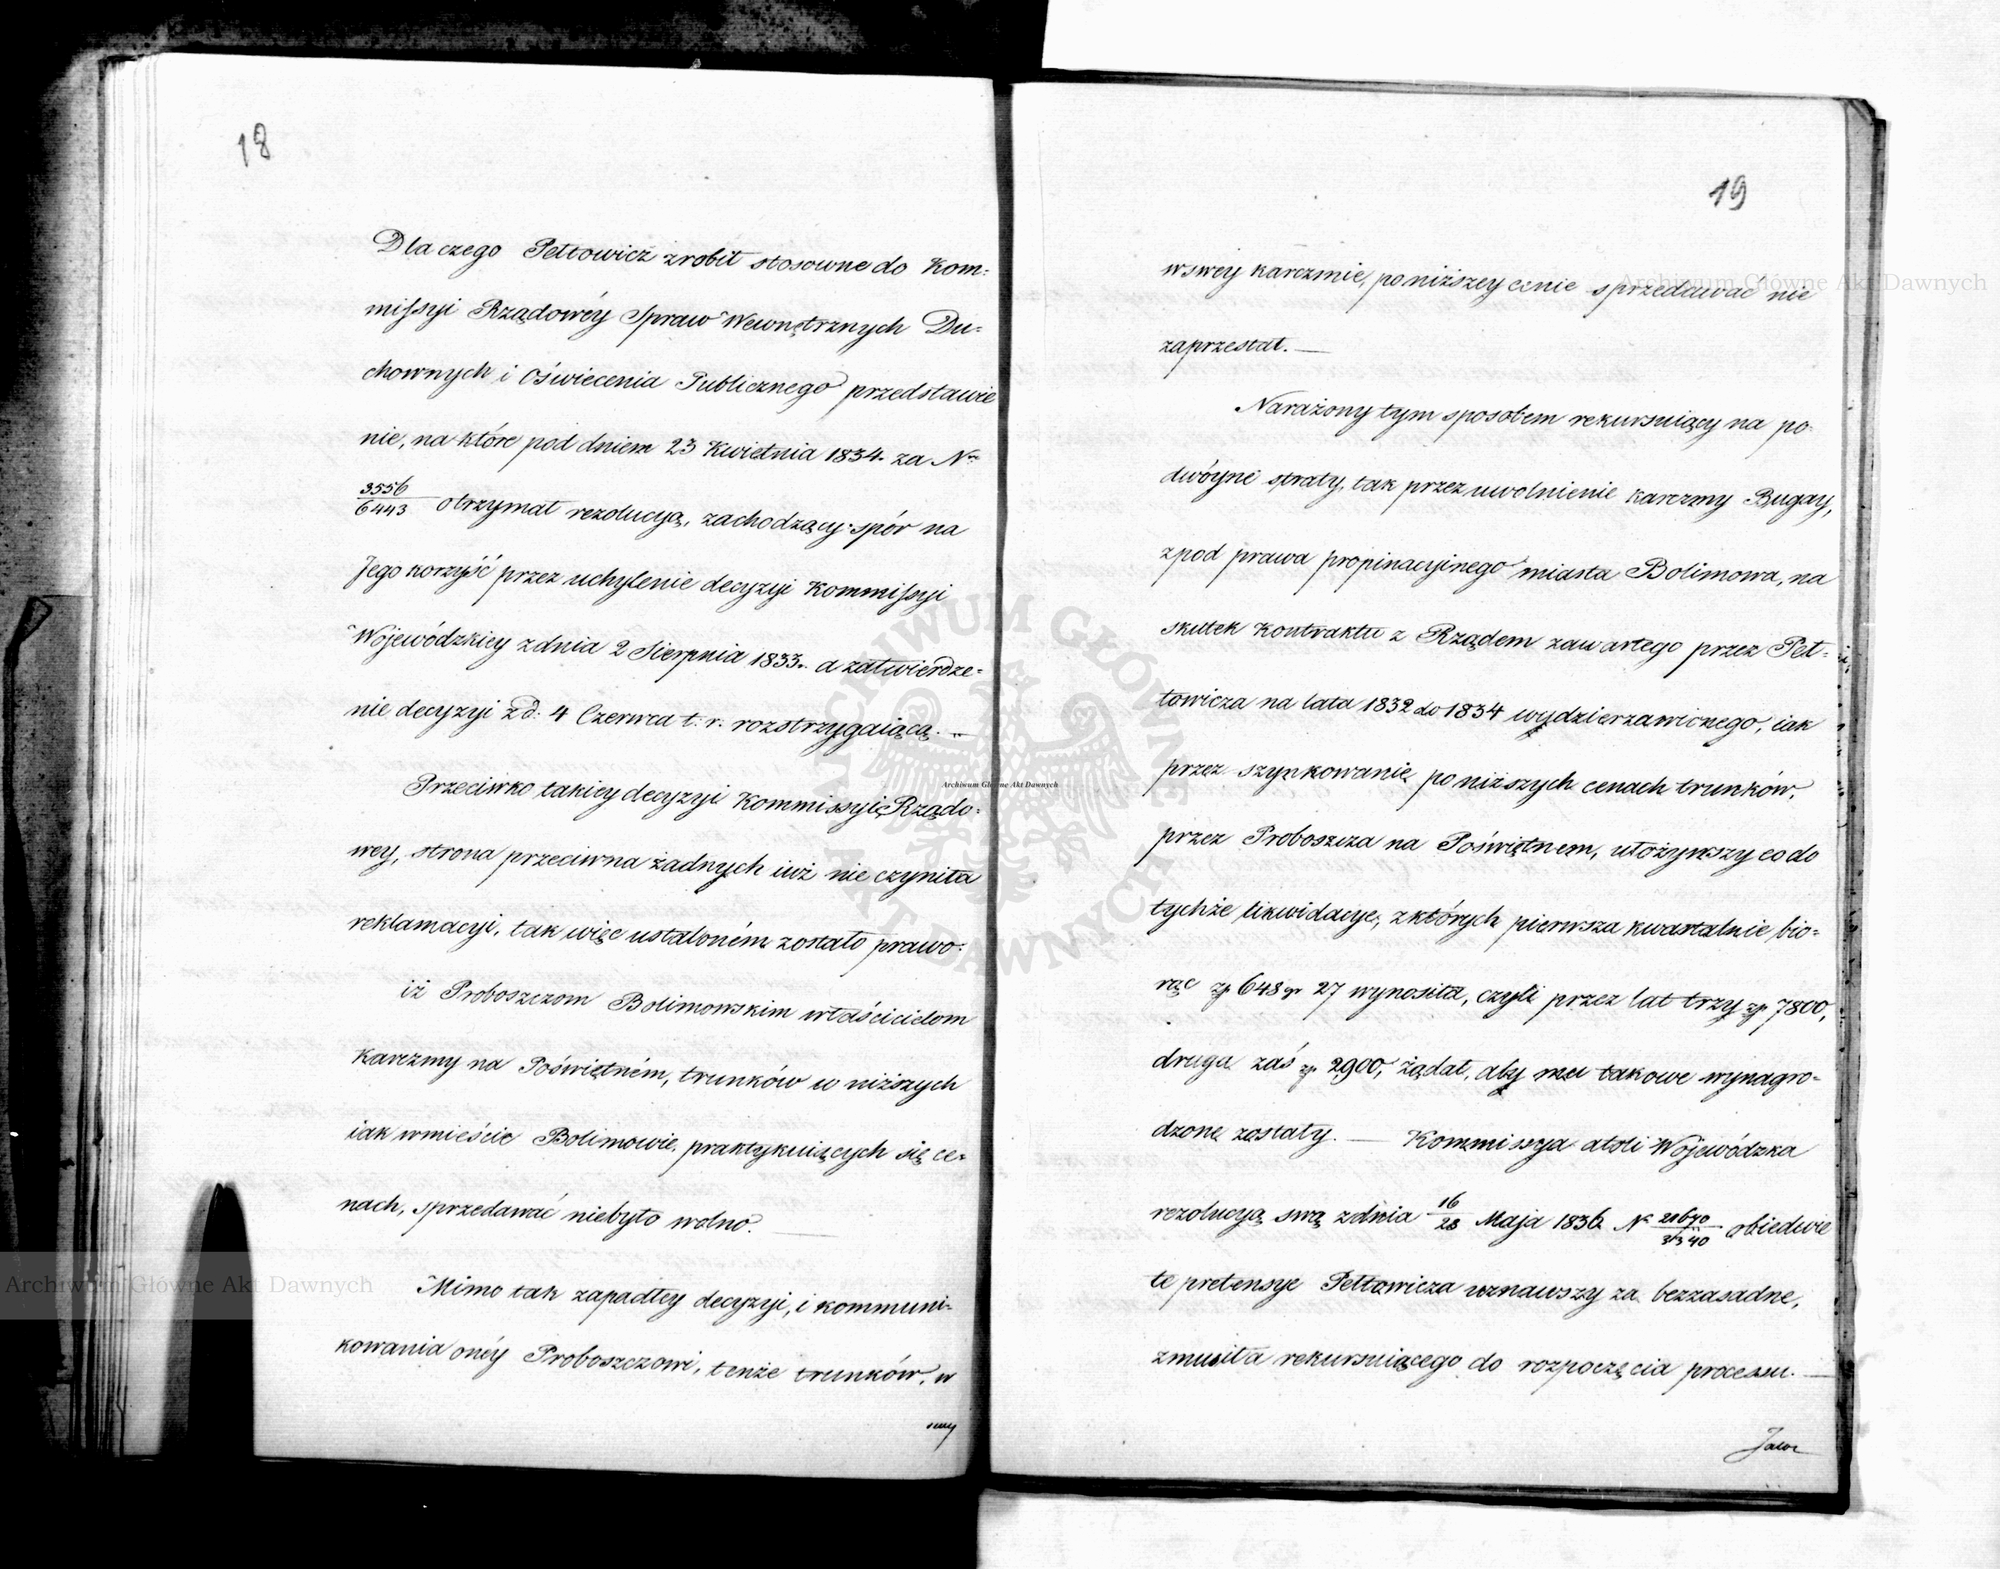 18
Dla czego Pełtowicz zrobił stosowne do Kom-
missyi Rządowéy Spraw Wewnętrznych Du-
chownych i Oświecenia Publicznego przedstawie
nie, na które pod dniem 23 Kwietnia 1834. za Nr
3556/6443 otrzymał rezolucyą, zachodzący spór na
Jego korzyść przez uchylenie decyzyi Kommissyi
Wojewódzkiey z dnia 2 Sierpnia 1833. a zatwierdze-
nie decyzyi z d: 4 Czerwca t. r. rozstrzygaiącą. —
Przeciwko takiey decyzyi Kommissyi Rządo-
wey, strona przeciwna żadnych iuż nie czyniła
reklamacyi, tak więc ustaloném zostało prawo:
iż Proboszczom Bolimowskim właścicielom
Karczmy na Poświętném, trunków w niższych
iak w mieście Bolimowie, praktykuiących się ce-
nach, sprzedawać niebyło wolno. —
Mimo tak zapadłey decyzyi, i kommuni-
kowania onéy Proboszczowi, tenże trunków, w
swey
19
w swey karczmie, po niższey cenie sprzedawać nie
zaprzestał. —
Narażony tym sposobem rekursuiący na po-
dwóyne straty, tak przez uwolnienie karczmy Bugay,
z pod prawa propinacyjnego miasta Bolimowa, na
skutek kontraktu z Rządem zawartego przez Peł-
towicza na lata 1832 do 1834 wydzierzawionego, iak
przez szynkowanie po niższych cenach trunków,
przez Proboszcza na Poświętnem, ułożywszy co do
tychże likwidacye, z których pierwsza kwartalnie bio-
rąc zp 648 gr 27 wynosiła, czyli przez lat trzy zp 7800,
druga zaś zp 2900, żądał, aby mu takowe wynagro-
dzone zostały. — Kommissya atoli Wojewódzka
rezolucyą swą z dnia 16/28 Maja 1836 N 21670/31340 obiedwie
te pretensye Pełtowicza uznawszy za bezzasadne,
zmusiła rekursuiącego do rozpoczęcia processu. —
Archiwum Główne Akt Dawnych
Archiwum Główne Akt Dawnych
Archiwum Główne Akt Dawnych
ARCHIWUM GŁÓWNE AKT DAWNYCH